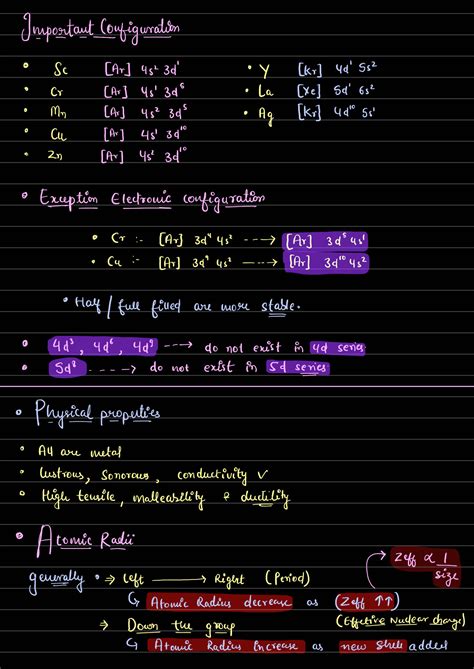 Important Configuration
• Sc [Ar] 4s² 3d¹ • Y [Kr] 4d¹ 5s²
• Cr [Ar] 4s¹ 3d⁵ • La [Xe] 5d¹ 6s²
• Mn [Ar] 4s² 3d⁵ • Ag [Kr] 4d¹⁰ 5s¹
• Cu [Ar] 4s¹ 3d¹⁰
• Zn [Ar] 4s² 3d¹⁰
• Exception Electronic configuration
• Cr :- [Ar] 3d⁴ 4s² ---→ [Ar] 3d⁵ 4s¹
• Cu :- [Ar] 3d⁹ 4s² ---→ [Ar] 3d¹⁰ 4s²
• Half / full filled are more stable.
• 4d³, 4d⁶, 4d⁹ ---→ do not exist in 4d series
• 5d⁸ ----→ do not exist in 5d series
• Physical properties
• All are metal
• lustrous, Sonorous, conductivity ✓
• High tensile, malleability & ductility
• Atomic Radii
Zeff ∝ 1/size
generally • → left ⟶ Right (Period)
↳ Atomic Radius decrease as (Zeff ↑↑)
(Effective Nuclear charge)
→ Down the group
↳ Atomic Radius Increase as new shell added